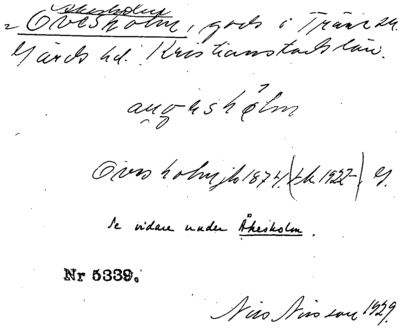 Åkesholm
= Ovesholm, gods i Träne sn.
Gärds hd. Kristianstads län.
Ovesholm jb 1874. (tk 1922). G.
Se vidare under Åkesholm.
Nr 5339.
Nils Nilsson 1929.